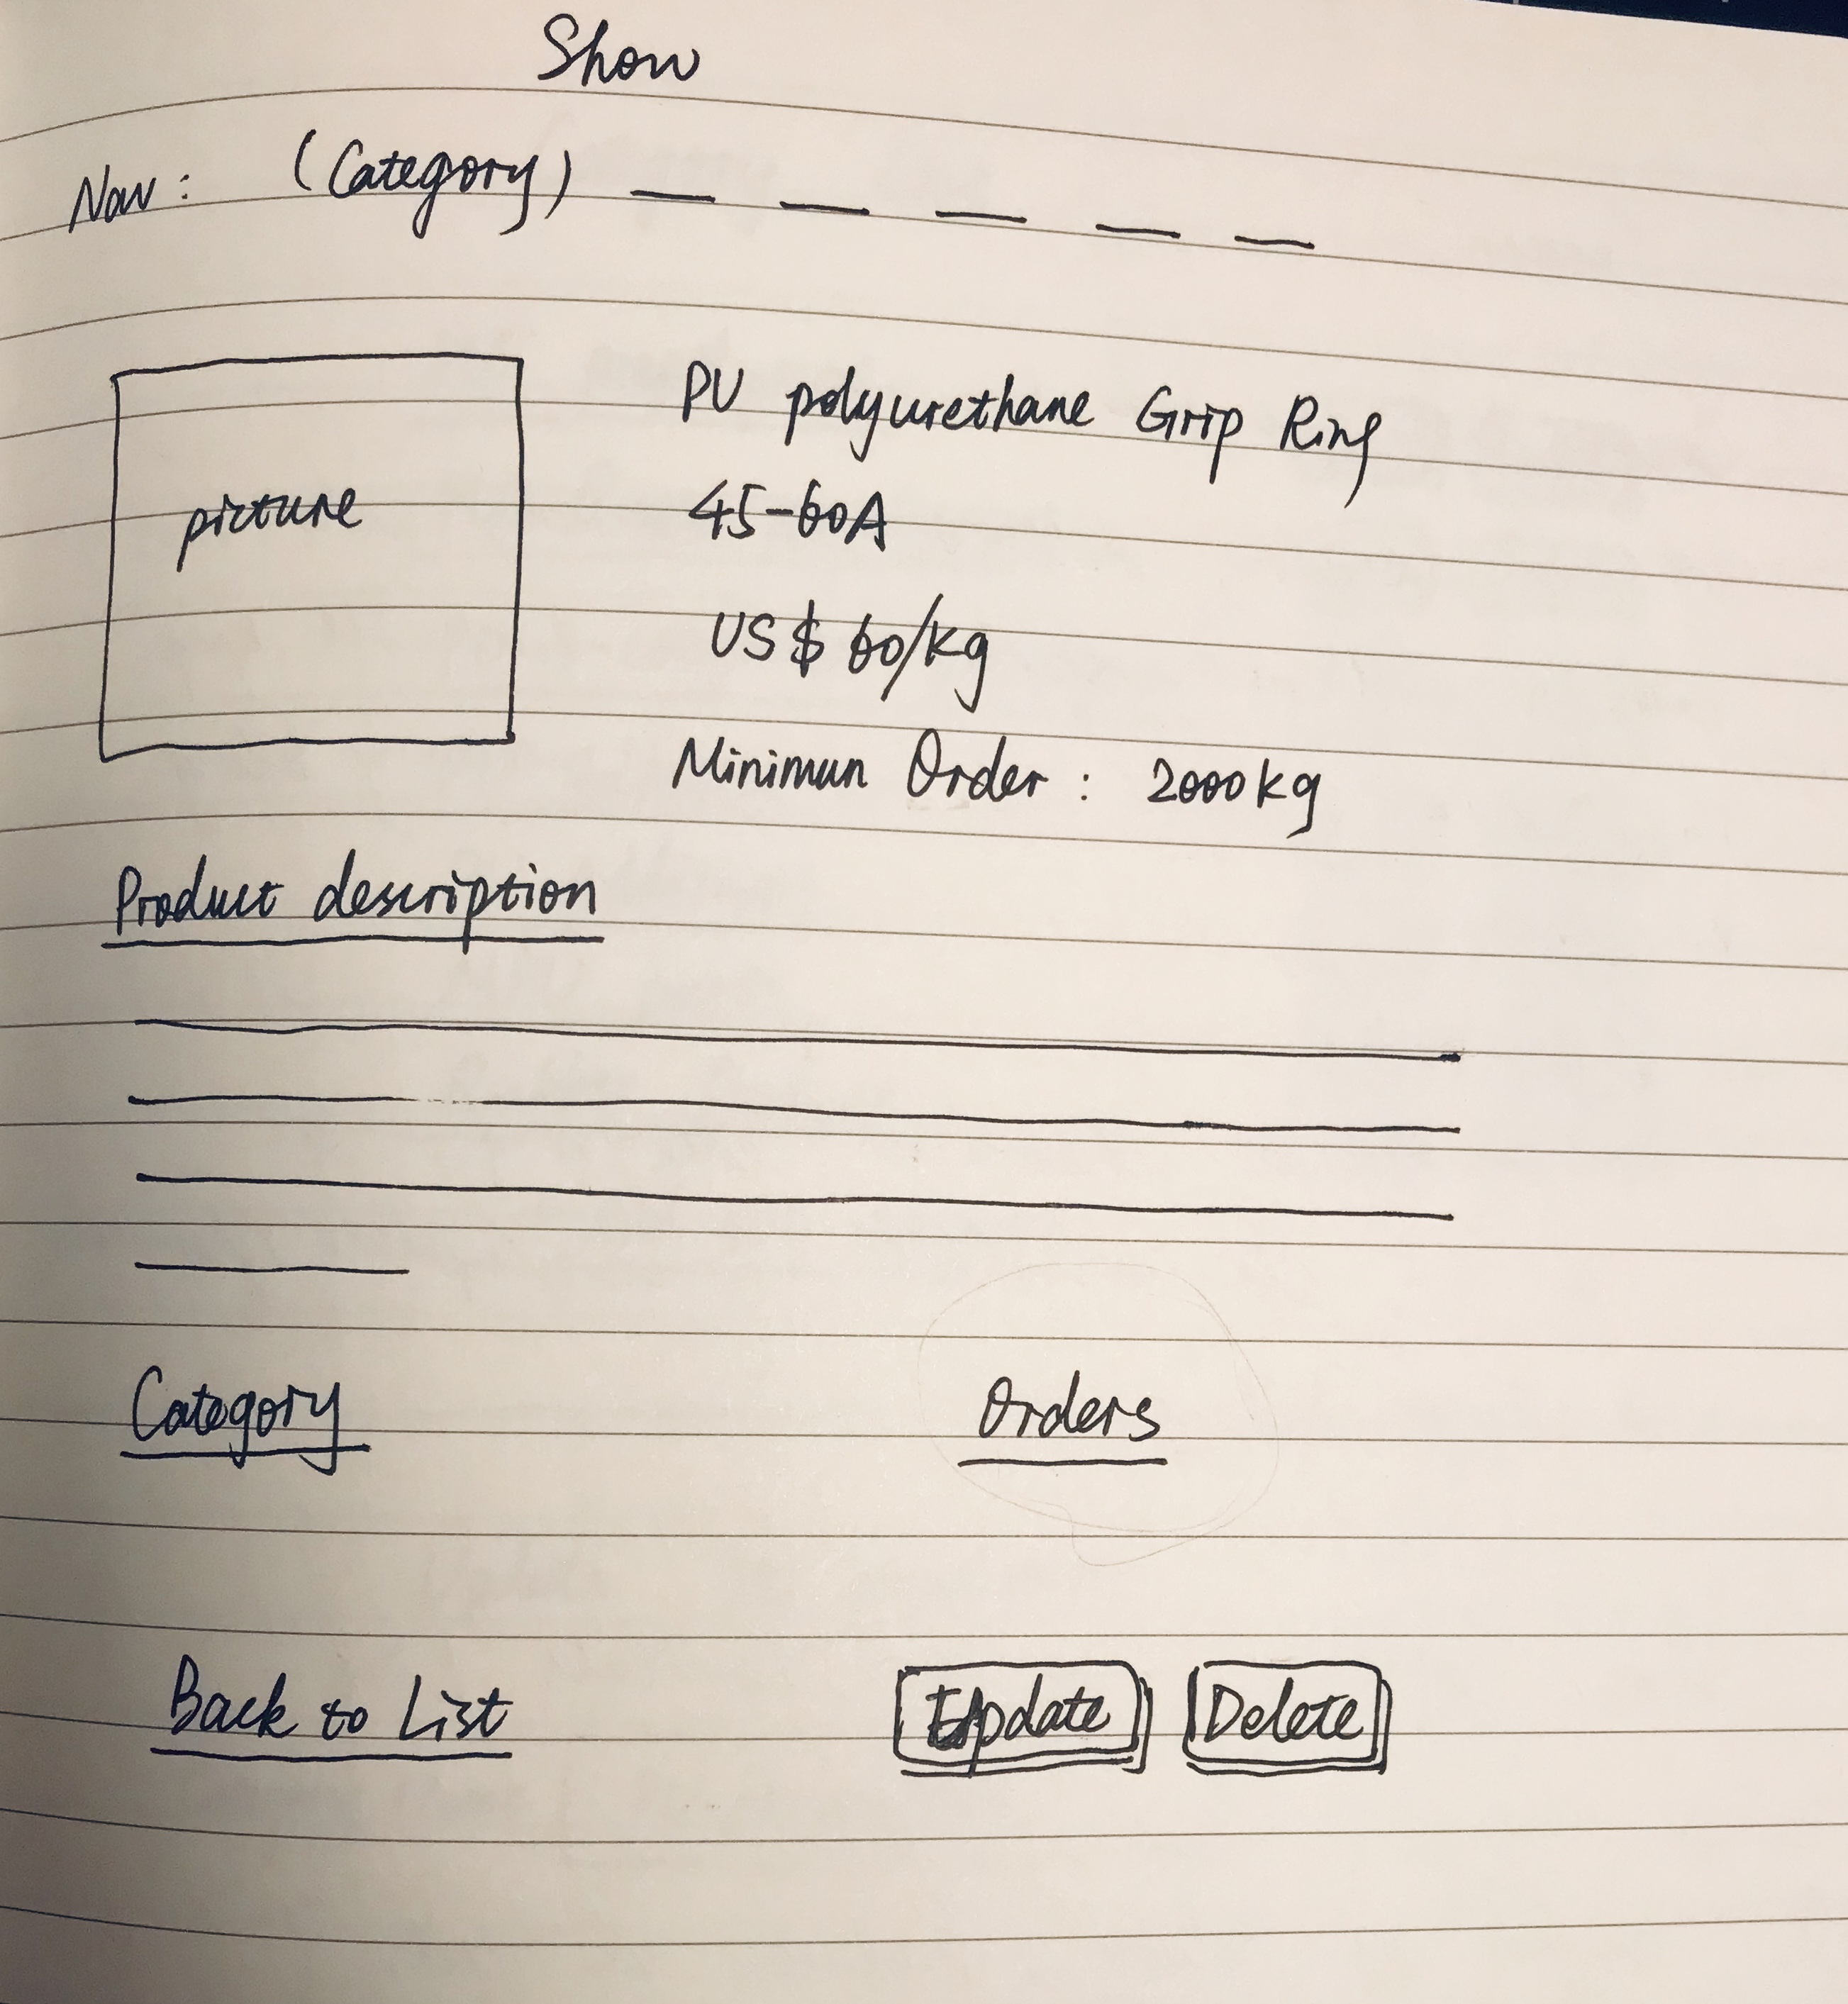 Show
Nav: (Category)
picture
PU polyurethane Grip Ring
45-60A
US$ 60/kg
Minimun Order: 2000kg
Product description
Category
Orders
Back to List
Update
Delete